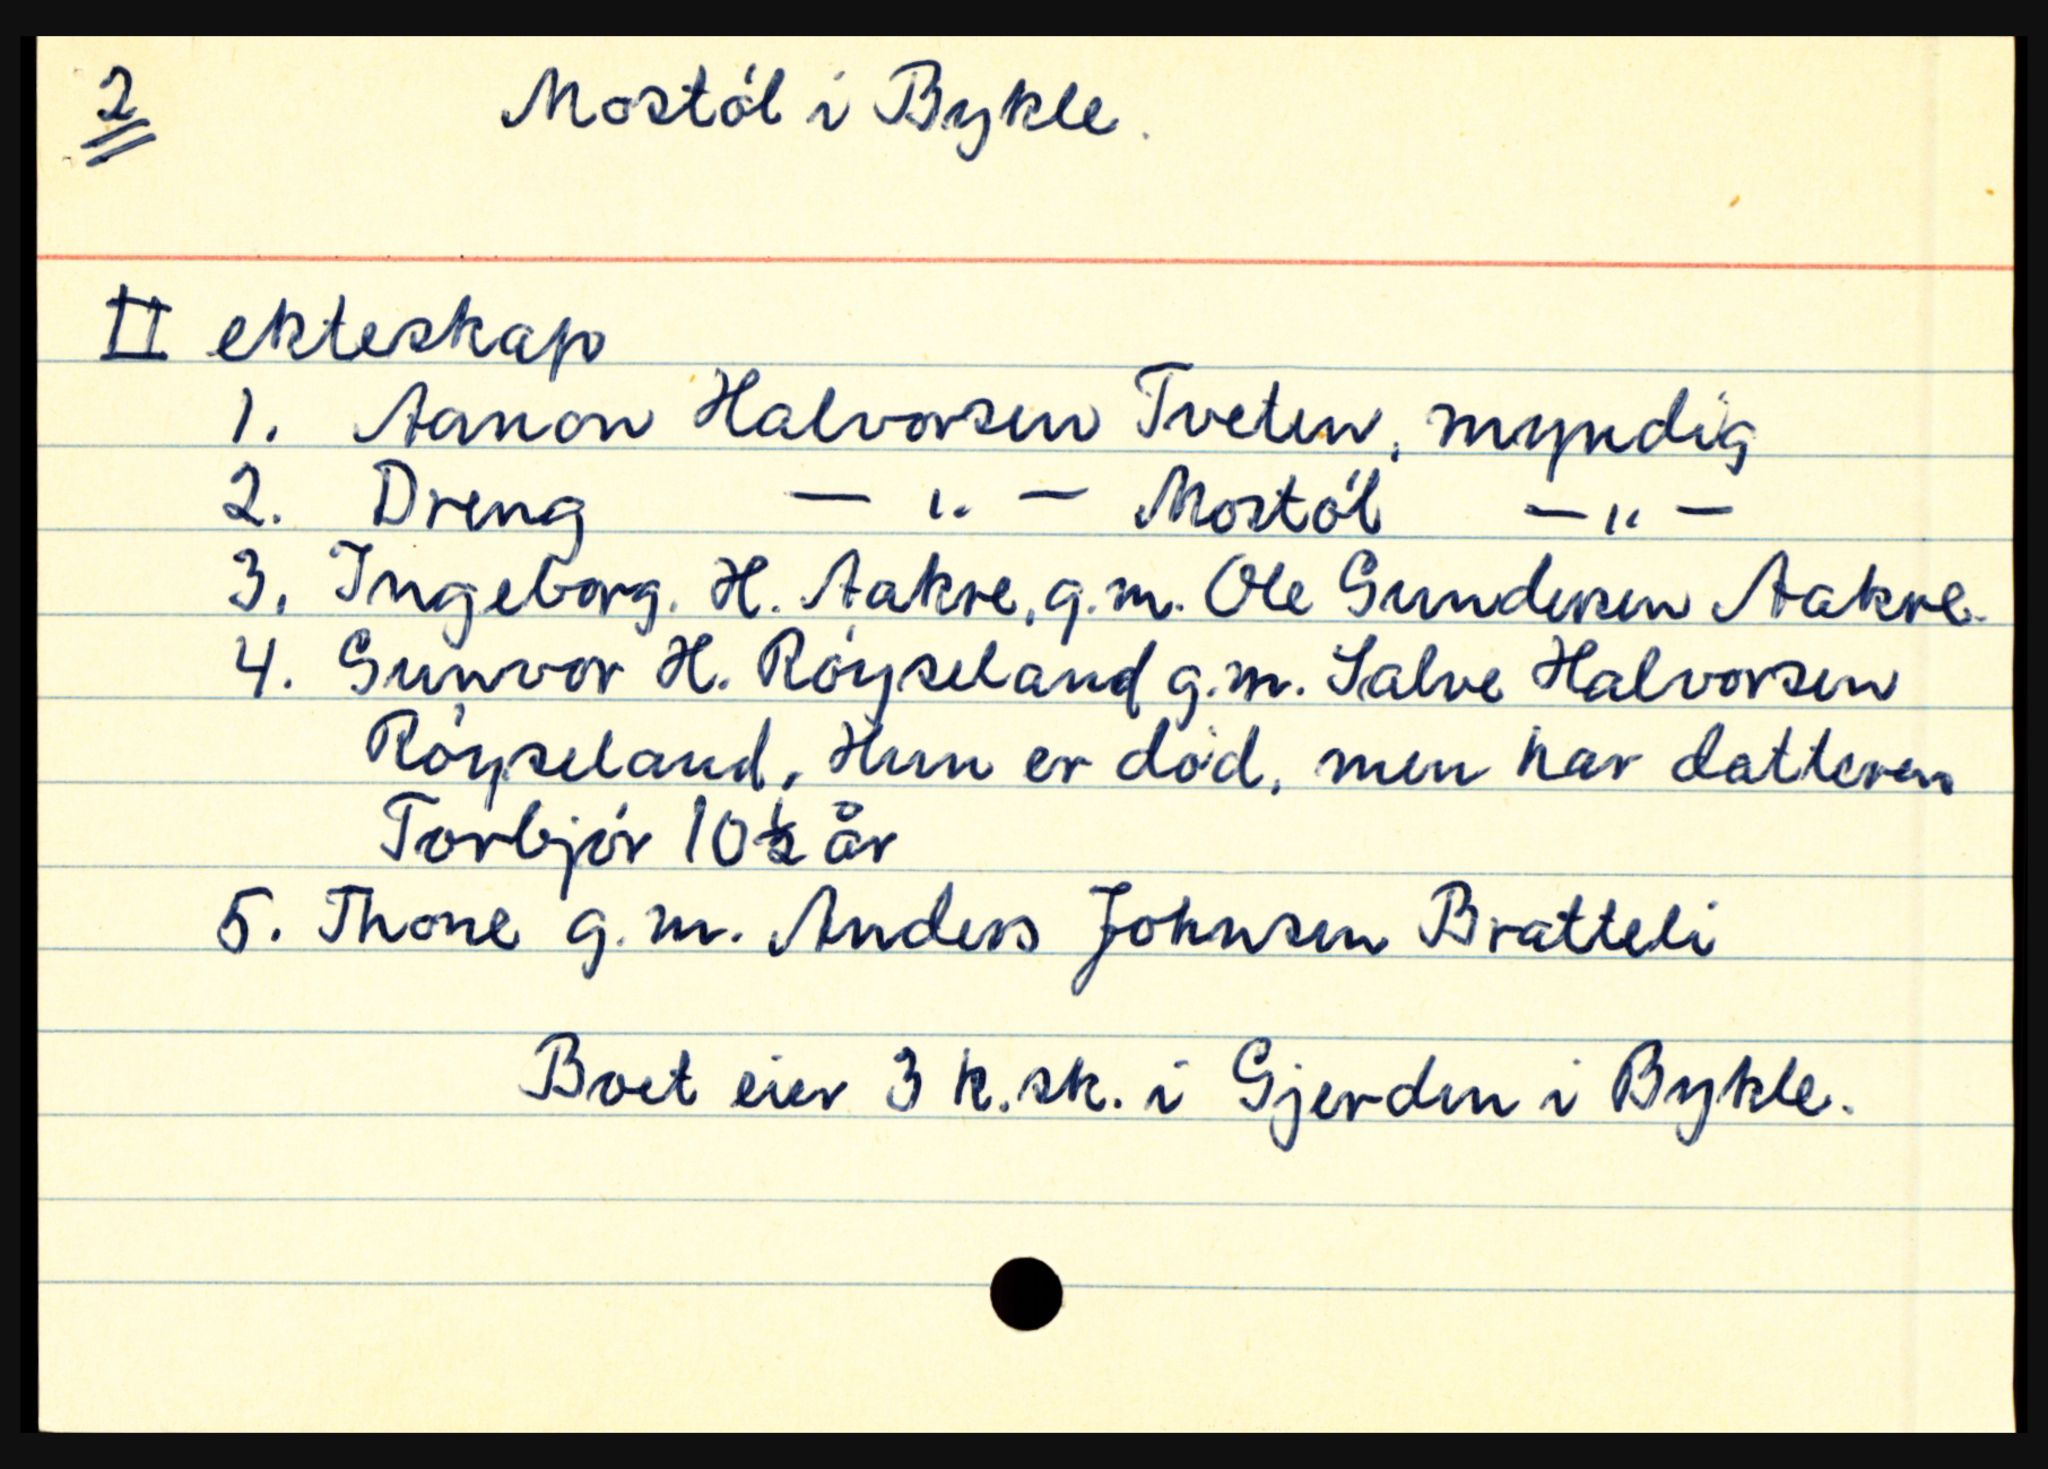 2 Mostól i Bykle.
II ekteskap
1. Aanon Halvorsen Tveten, myndig
2. Dreng — " — Mostól — " —
3. Ingeborg. H. Aakre, g.m. Ole Gundersen Aakre.
4. Gunvor H. Róyseland g.m. Salve Halvorsen
Róyseland. Hun er död, men har datteren
Torbjór 10 ½ år
5. Thone g.m. Anders Johnsen Bratteli
Boet eier 3 k.sk. i Gjerden i Bykle.